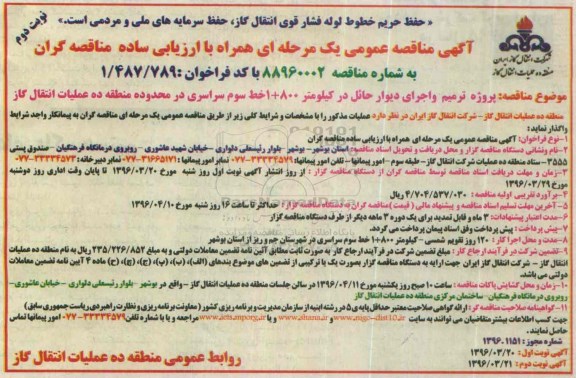 « حفظ حریم خطوط لوله فشار قوی انتقال گاز، حفظ سرمایه های ملی و مردمی است.»
نوبت دوم
آگهی مناقصه عمومی یک مرحله ای همراه با ارزیابی ساده مناقصه گران
به شماره مناقصه ۸۸۹۶۰۰۰۲ با کد فراخوان :۱/۴۸۷/۷۸۹
شرکت انتقال گاز ایران
منطقه ده عملیات انتقال گاز
موضوع مناقصه: پروژه ترمیم واجرای دیوار حائل در کیلومتر ۸۰۰+۱خط سوم سراسری در محدوده منطقه ده عملیات انتقال گاز
منطقه ده عملیات انتقال گاز- شرکت انتقال گاز ایران در نظر دارد عملیات مذکور را با مشخصات و شرایط کلی زیر از طریق مناقصه عمومی یک مرحله ای مناقصه گران به پیمانکار واجد شرایط
واگذار نماید:
۱-نوع فراخوان: آگهی مناقصه عمومی یک مرحله ای همراه با ارزیابی ساده مناقصه گران
۲-نام ونشانی دستگاه مناقصه گزار و محل دریافت و تحویل اسناد مناقصه: استان بوشهر- بوشهر- بلوار رئیسعلی دلواری - خیابان شهید عاشوری - روبروی درمانگاه فرهنگیان - صندوق پستی
۳۵۵۵- ستاد منطقه ده عملیات انتقال گاز- طبقه سوم - امور پیمانها - تلفن امور پیمانها: ۳۳۳۳۴۵۷۹-۰۷۷ نمابر امور پیمانها : ۳۱۶۶۵۱۷۱-۰۷۷ نمابر دبیرخانه: ۳۳۳۳۴۵۷۲-۰۷۷
۳-زمان و مهلت دریافت اسناد مناقصه توسط مناقصه گران از دستگاه مناقصه گزار : از روز انتشار آگهی نوبت اول روز شنبه مورخ ۱۳۹۶/۰۳/۲۰ تا پایان وقت اداری روز دوشنبه
مورخ ۱۳۹۶/۰۳/۲۹
۴-برآورد تقریبی اولیه مناقصه : ۴/۷۰۴/۵۳۷/۰۳۰ ریال
۵-آخرین مهلت تسلیم اسناد مناقصه و پیشنهاد مالی ( قیمت )مناقصه گران به دستگاه مناقصه گزار : حداکثر تا ساعت ۱۶ روز شنبه مورخ ۱۳۹۶/۰۴/۱۰
۶-مدت اعتبار پیشنهادات: ۳ ماه و قابل تمدید برای یک دوره ۳ ماهه دیگر از طرف دستگاه مناقصه گزار
۷-پیش پرداخت : پیش پرداخت وفق اسناد پیمان پرداخت می گردد.
۸-مدت و محل اجرا کار : ۱۲۰ روز تقویم شمسی - کیلومتر ۸۰۰+۱ خط سوم سراسری در شهرستان جم و ریز از استان بوشهر
۹-تضمین شرکت در فرآیند ارجاع کار: مبلغ تضمین شرکت در فرآیند ارجاع کار به صورت ثابت مطابق آئین نامه تضمین معاملات دولتی و به مبلغ ۲۳۵/۲۲۶/۸۵۲ ریال به نام منطقه ده عملیات
انتقال گاز - شرکت انتقال گاز ایران جهت ارایه به دستگاه مناقصه گزار بصورت یک یا ترکیبی از تضمین های موضوع بندهای (الف)، (ب)، (پ)، (ج)، (چ)، (ح) ماده ۴ آیین نامه تضمین معاملات
دولتی می باشد.
۱۰-زمان و محل گشایش پاکات مناقصه: ساعت ۱۰ صبح روز یکشنبه مورخ ۱۳۹۶/۰۴/۱۱ در سالن جلسات منطقه ده عملیات انتقال گاز - واقع در بوشهر -بلوار رئیسعلی دلواری - خیابان عاشوری-
روبروی درمانگاه فرهنگیان- ساختمان مرکزی منطقه ده عملیات انتقال گاز
۱۱-گواهینامه صلاحیت مناقصه گر : ارائه گواهی صلاحیت معتبر حداقل پایه ی ۵ در رشته ابنیه از سازمان مدیریت و برنامه ریزی کشور (معاونت برنامه ریزی و نظارت راهبردی ریاست جمهوری سابق)
جهت کسب اطلاعات بیشتر متقاضیان می توانند به سایت www.nigc-dist10.ir و www.shana.ir و www.iets.mporg.ir مراجعه و یا با شماره تلفن ۳۳۳۳۴۵۷۹-۰۷۷ امور پیمانها تماس
حاصل نمایند.
شماره مجوز : ۱۳۹۶.۱۱۵۱
آگهی نوبت اول: ۱۳۹۶/۰۳/۲۰
آگهی نوبت دوم : ۱۳۹۶/۰۳/۲۱
روابط عمومی منطقه ده عملیات انتقال گاز